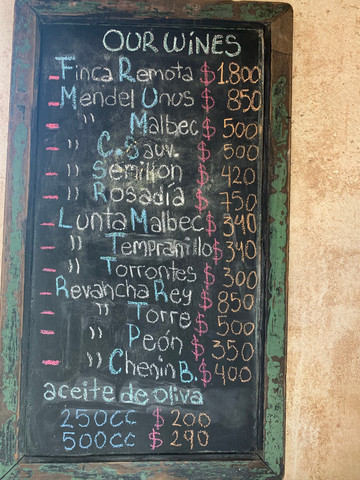 OUR WINES
- Finca Remota $ 1.800
- Mendel Unus $ 850
- " Malbec $ 500
- " C. Sauv. $ 500
- " Semillon $ 420
- " Rosadía $ 750
- Lunta Malbec $ 340
- " Tempranillo $ 340
- " Torrontes $ 300
- Revancha Rey $ 850
- " Torre $ 500
- " Peón $ 350
- " Chenin B. $ 400
aceite de oliva
250cc $ 200
500cc $ 290